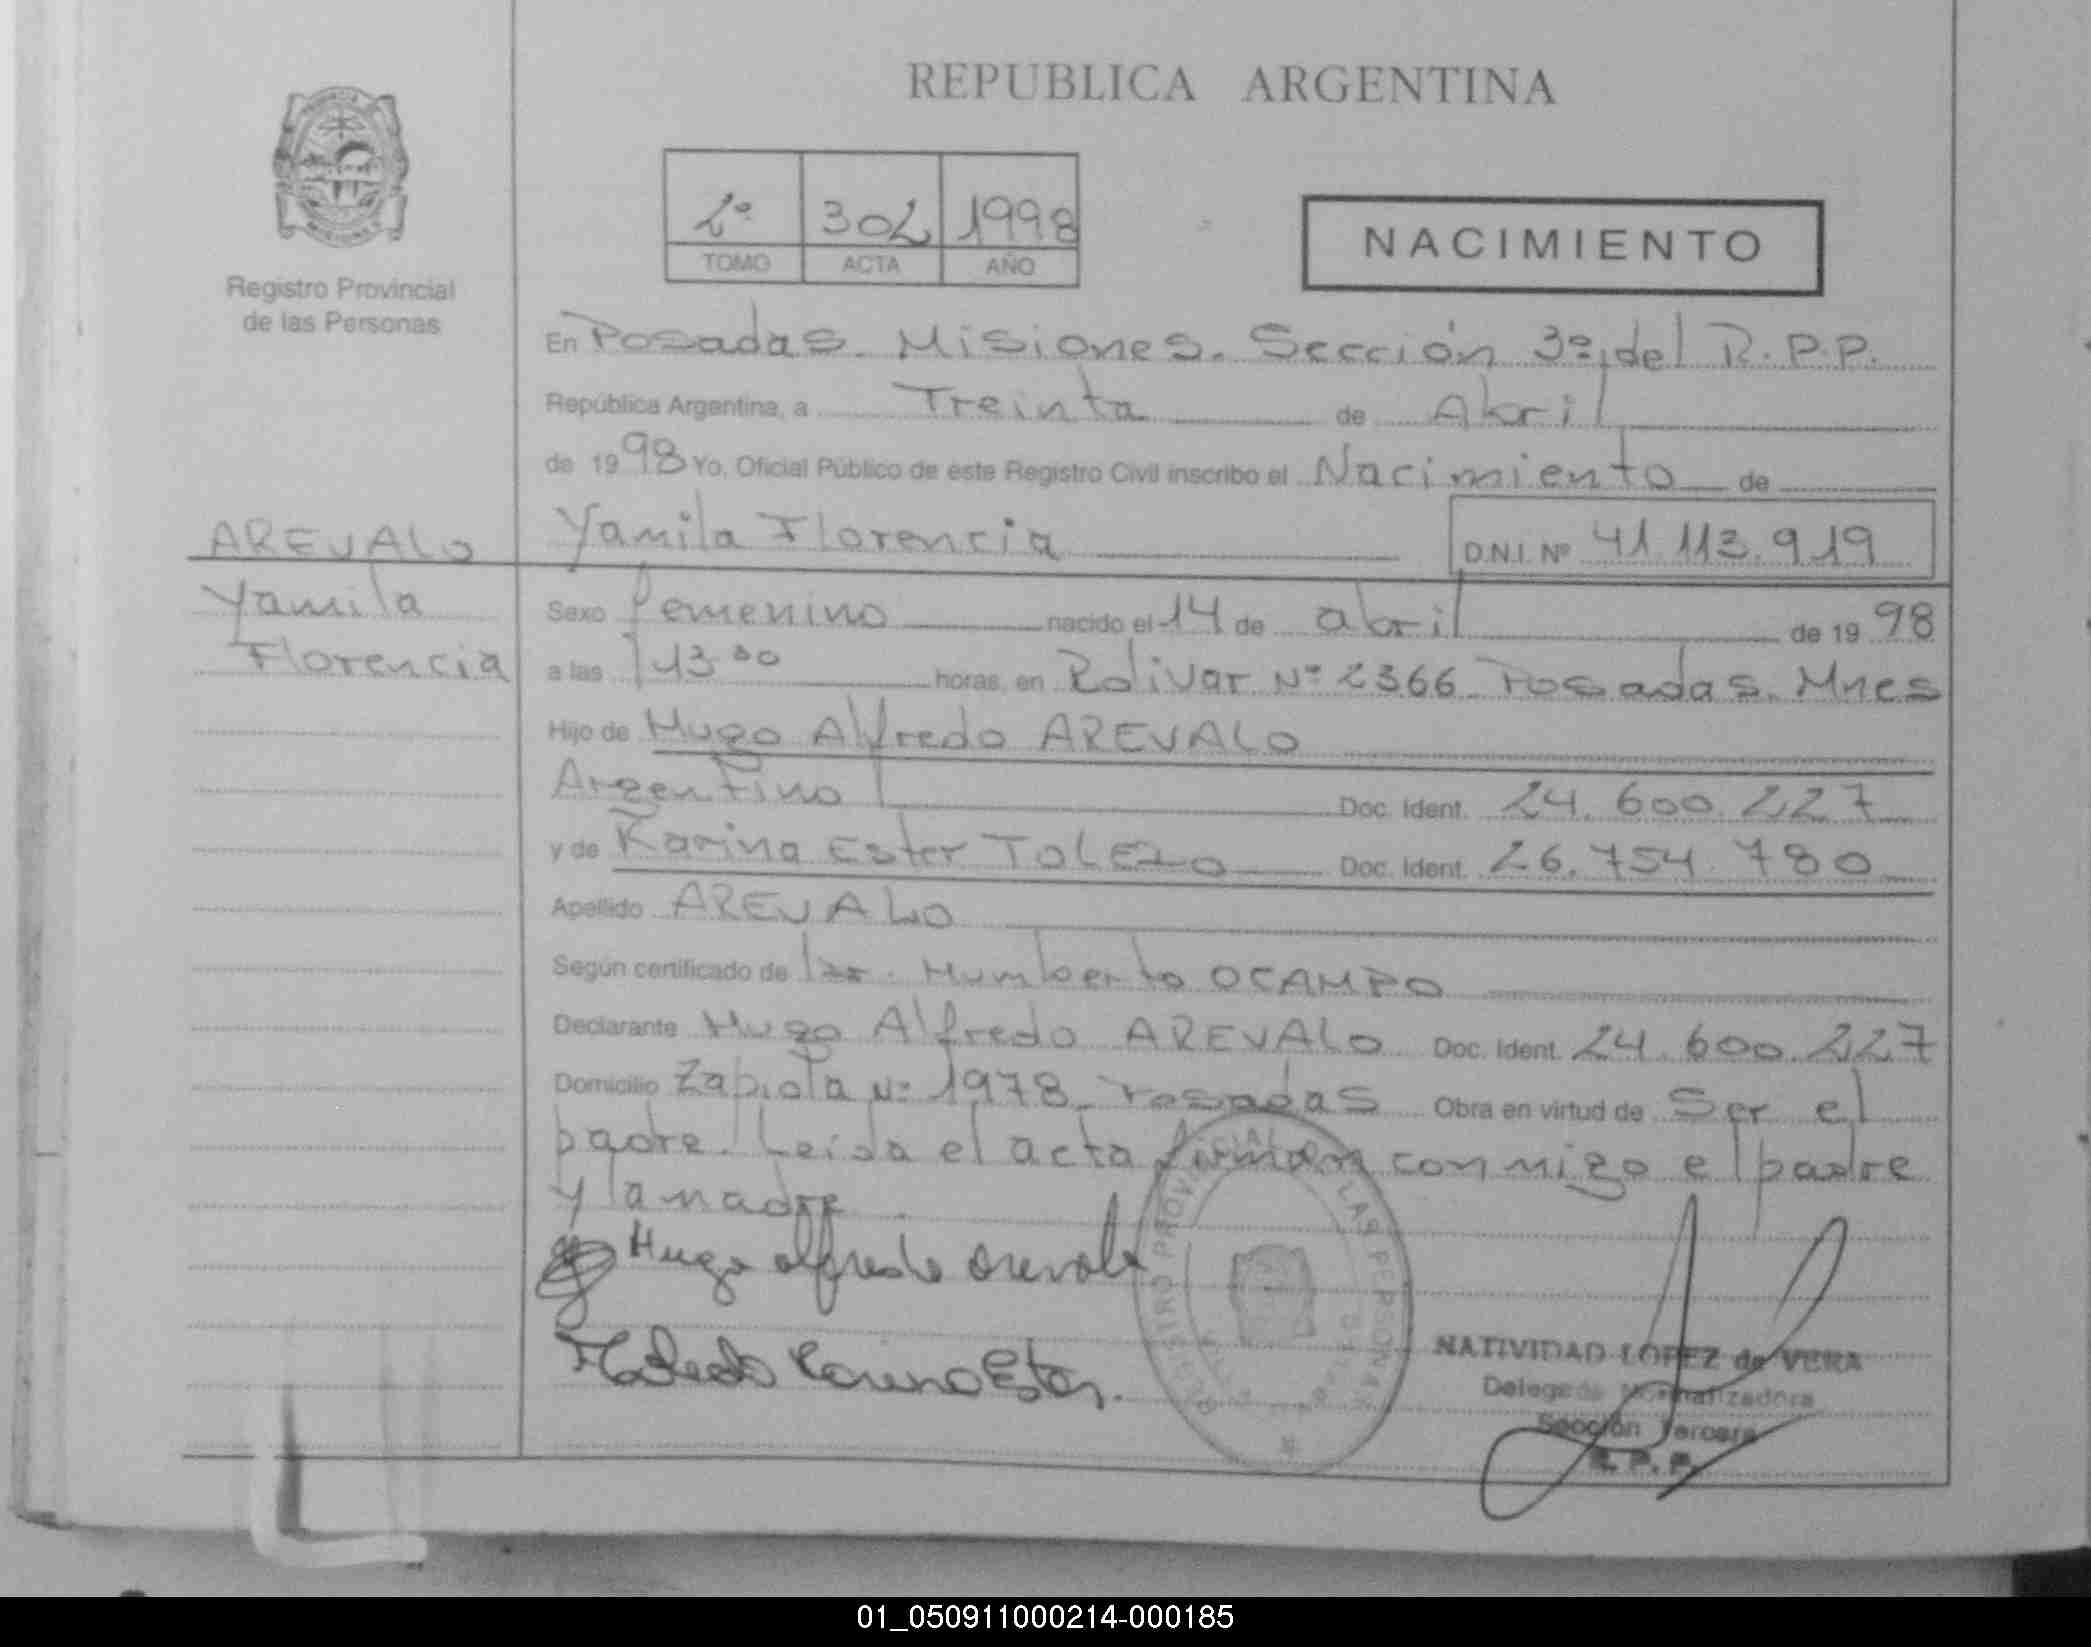 REPUBLICA ARGENTINA
2º 302 1998
TOMO ACTA AÑO
NACIMIENTO
Registro Provincial
de las Personas
En Posadas. Misiones. Sección 3º del R.P.P.
República Argentina, a Treinta de Abril
de 1998 Yo, Oficial Público de este Registro Civil inscribo el Nacimiento de
AREVALO Yamila Florencia D.N.I. Nº 41.113.919
Yamila
Florencia
Sexo femenino nacido el 14 de abril de 1998
a las 13 00 horas, en Bolivar Nº 2366 Posadas. Mnes
Hijo de Hugo Alfredo AREVALO
Argentino Doc. Ident. 24.600.227
y de Karina Ester TOLEDO Doc. Ident. 26.754.780
Apellido AREVALO
Según certificado de Dr. Humberto OCAMPO
Declarante Hugo Alfredo AREVALO Doc. Ident. 24.600.227
Domicilio Zapiola Nº 1978 Posadas Obra en virtud de Ser el
padre. Leída el acta firman conmigo el padre
y la madre
Hugo Alfredo Arevalo
Toledo Karina Ester.
REGISTRO PROVINCIAL LAS PERSONAS
NATIVIDAD LOPEZ de VERA
Delegada Normalizadora
Sección Tercera
R.P.P.
01_050911000214-000185